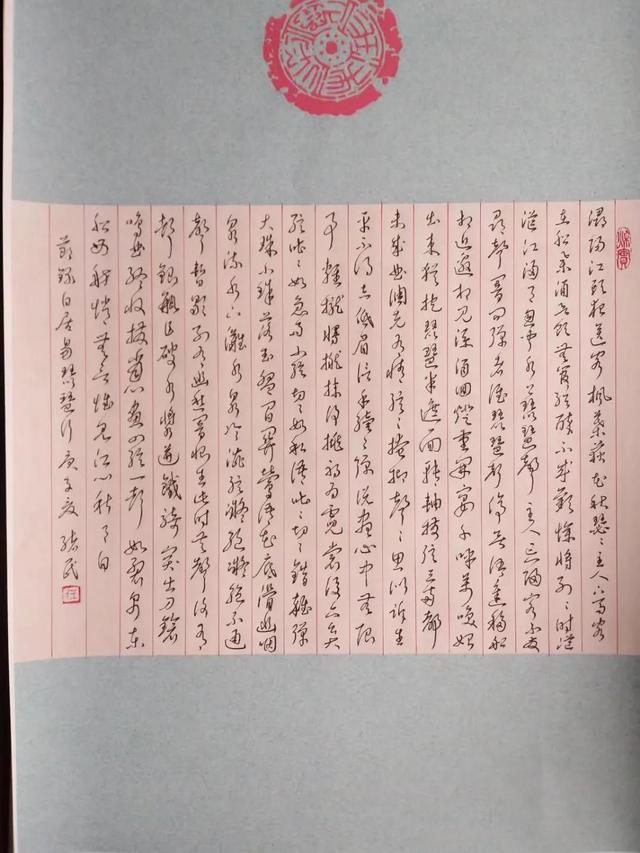 潯陽江頭夜送客楓葉荻花秋瑟〻主人下馬客
在船舉酒欲飲無管絃醉不成歡慘將別〻時茫
茫江浸月忽聞水上琵琶聲主人忘歸客不發
尋聲闇問彈者誰琵琶聲停欲語遲移船
相近邀相見添酒回燈重開宴千呼萬喚始
出來猶抱琵琶半遮面轉軸撥絃三兩聲
未成曲調先有情絃〻掩抑聲〻思似訴生
平不得志低眉信手續〻彈說盡心中無限
事輕攏慢撚抹復挑初為霓裳後六幺
絃嘈〻如急雨小絃切〻如私語嘈〻切〻錯雜彈
大珠小珠落玉盤間關鶯語花底滑幽咽
泉流水下灘水泉冷澀絃凝絕凝絕不通
聲暫歇別有幽愁闇恨生此時無聲勝有
聲銀瓶乍破水漿迸鐵騎突出刀鎗
鳴曲終收撥當心畫四絃一聲如裂帛東
船西舫悄無言唯見江心秋月白
節錄白居易琵琶行庚子夏